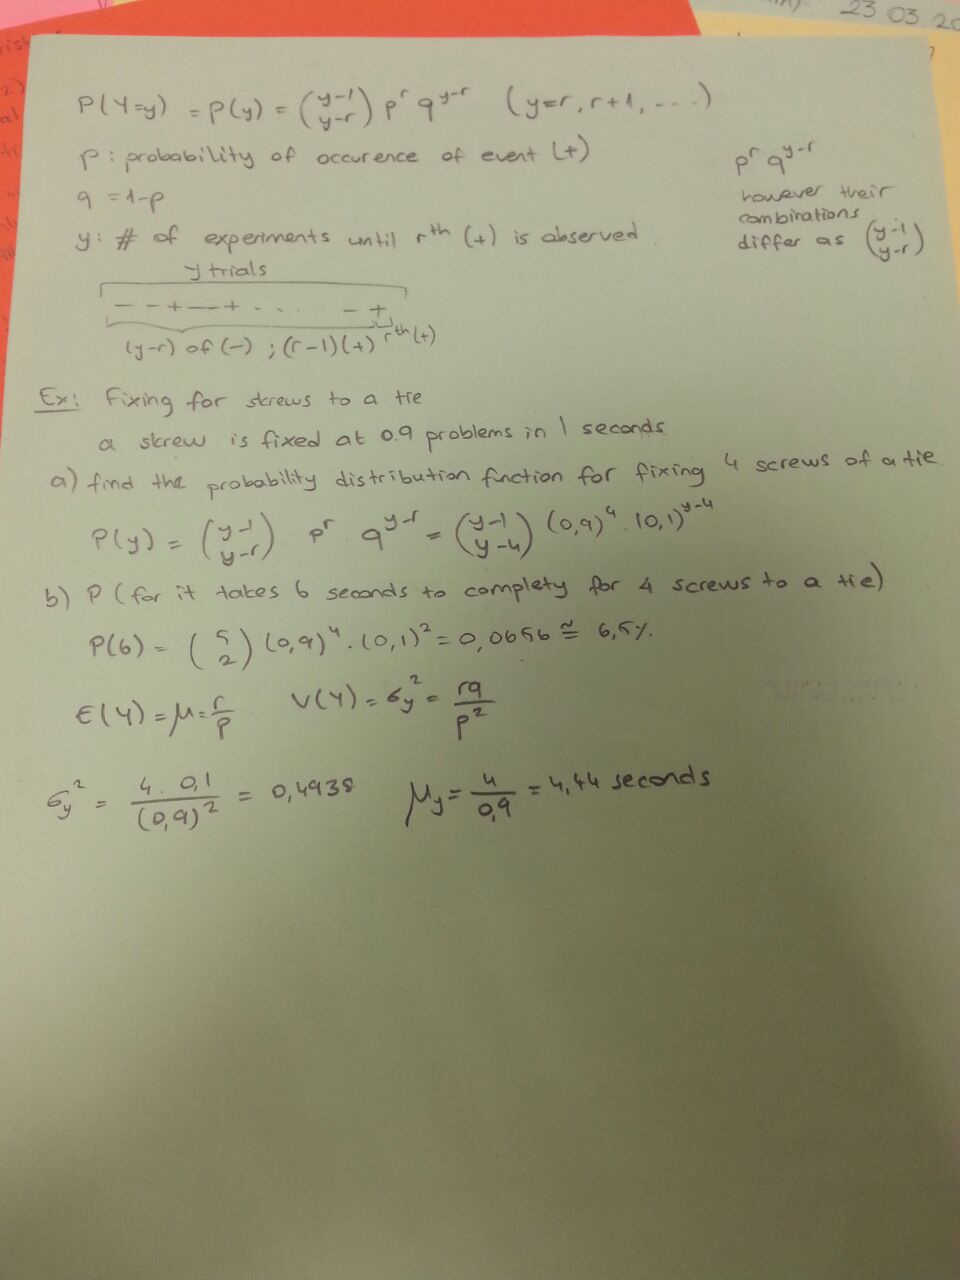 23 03 20
P(Y=y) = P(y) = (y-1 y-r) p^r q^y-r (y=r, r+1, ...)
p : probability of occurence of event (+)
q = 1-p
y : # of experiments until r^th (+) is observed
p^r q^y-r
however their
combinations
differ as (y-1 y-r)
y trials
- - + - + . . . - +
(y-r) of (-) ; (r-1)(+) r^th (+)
Ex: Fixing for skrews to a tie
a skrew is fixed at 0.9 problems in 1 seconds
a) find the probability distribution function for fixing 4 screws of a tie.
P(y) = (y-1 y-r) p^r q^y-r = (y-1 y-4) (0,9)^4 . (0,1)^y-4
b) P (for it takes 6 seconds to complety for 4 screws to a tie)
P(6) = (5 2) (0,9)^4 . (0,1)^2 = 0,0656 ≅ 6,5%.
E(Y) = μ = r/p V(Y) = σy^2 = rq/p^2
σy^2 = 4 . 0,1/(0,9)^2 = 0,4938 μy = 4/0,9 = 4,44 seconds